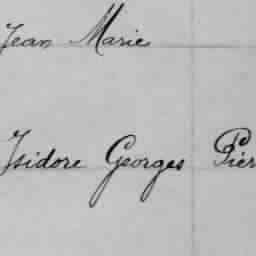 Jean Marie
Isidore Georges Pier